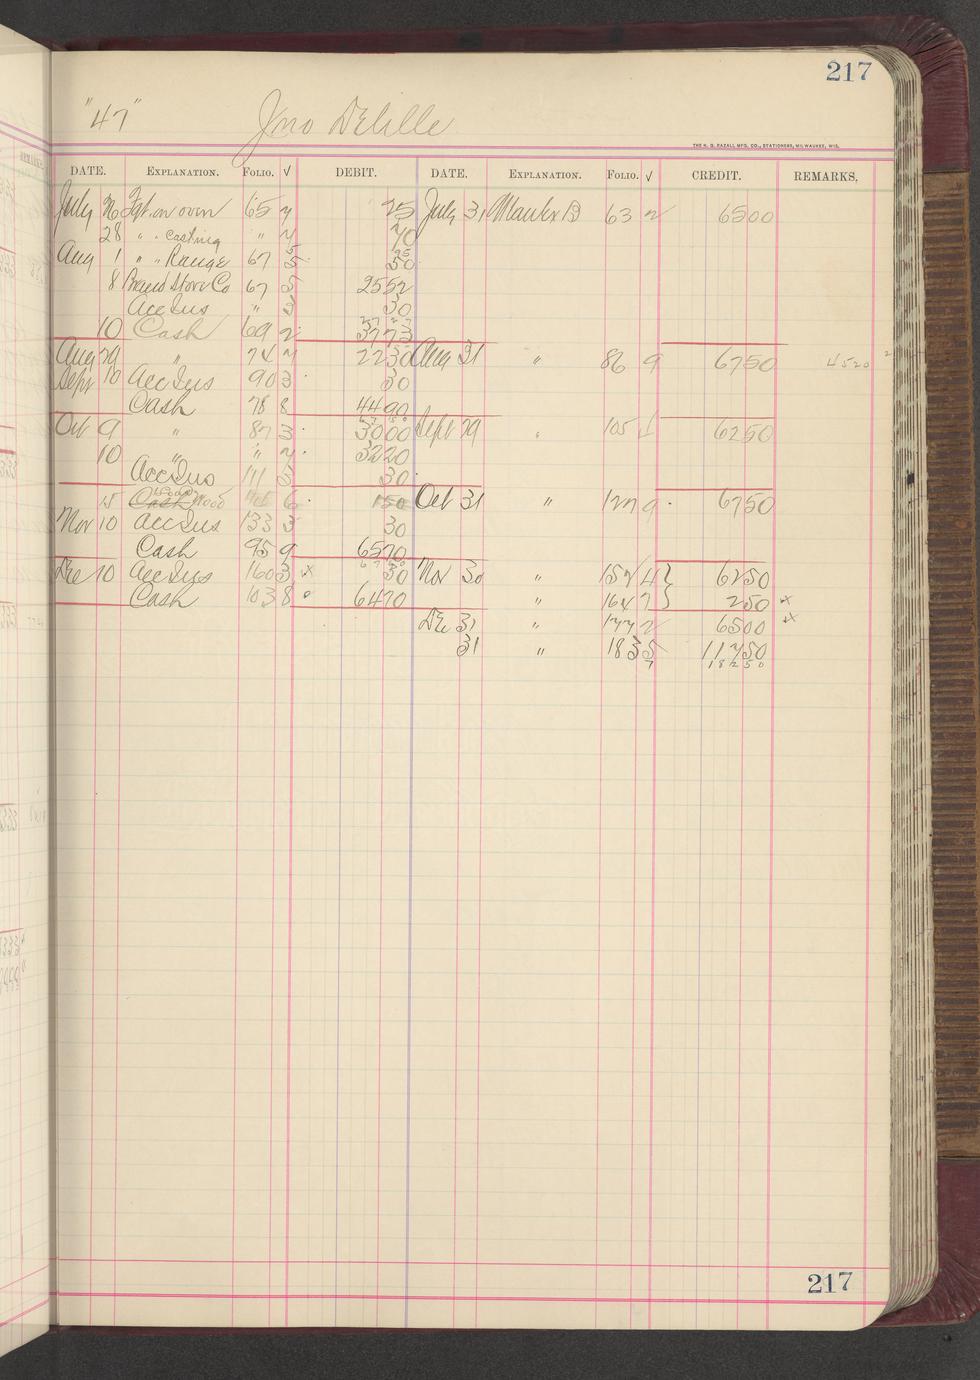 217
"47" Jno Delille
THE H. G. RAZALL MFG. CO., STATIONERS, MILWAUKEE, WIS.
DATE. EXPLANATION. FOLIO. √ DEBIT. DATE. EXPLANATION. FOLIO. √ CREDIT. REMARKS.
July 26 Fgt. on oven 65 2 25 July 31 63 2 6500
28 " " casting " 2 70
Aug 1 " " Range 67 5 50
8 Stove Co 67 5 2552
Acc Ins " 3 30
10 Cash 69 2 3773
Aug 29 " 74 2 2230 Aug 31 " 86 9 6750 4520
Sept 10 Acc Ins 90 3 30
Cash 78 8 4490
Oct 9 " 87 3 3000 Sept 29 " 105 1 6250
10 " " 2 3220
Acc Ins 111 5 30
15 Cash Wood 6 150 Oct 31 " 127 9 6750
Nov 10 Acc Ins 133 3 30
Cash 95 9 6570
Dec 10 Acc Ins 160 3 x 30 Nov 30 " 152 4 } 6250
Cash 103 8 6470 " 164 7 } 250 x
Dec 31 " 177 2 6500 x
31 " 183 5 11750
7 18250
217